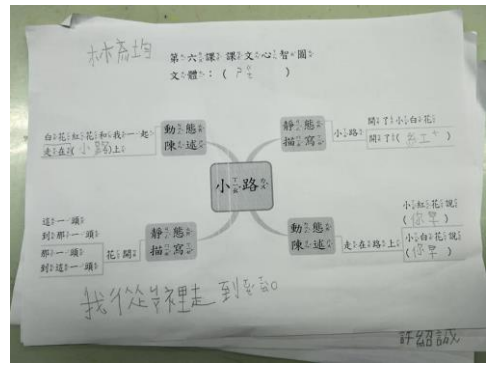 林
第六課 課文心智圖
文體：( )
動態
陳述
白花紅花和我一起
走在(小路)上
靜態
描寫
小路
開了小白花
開了( 紅 )
小路
靜態
描寫
花開
這一頭
到那一頭
那一頭
到這一頭
動態
陳述
走在路上
小紅花說
(你早)
小白花說
(你早)
我 從 裡走到
許紹誠